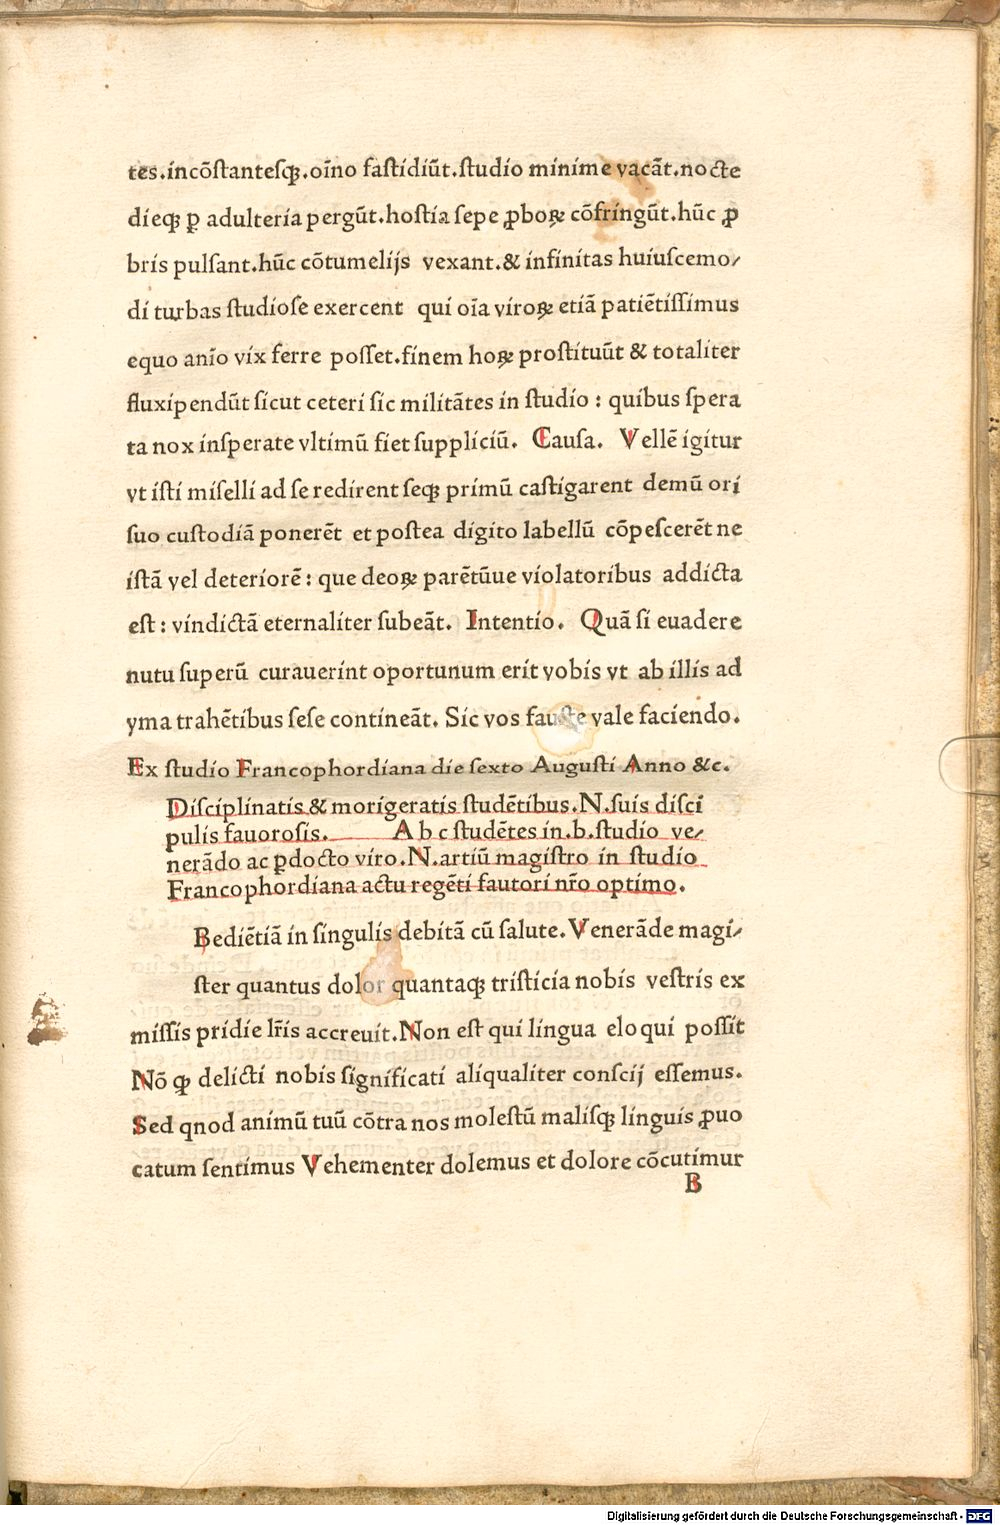 tes.incōſtanteſqꝫ.oīno faſtidiūt.ſtudio minime vacāt.nocte
dieqꝫ ꝑ adulteria pergūt.hoſtia ſepe ꝓboꝝ cōfringūt.hūc ꝓ
bris pulſant.hūc cōtumelijs vexant.& infinitas huiuſcemo⸗
di turbas ſtudioſe exercent qui oīa viroꝝ etiā patiētiſſimus
equo anīo vix ferre poſſet.finem hoꝝ proſtituūt & totaliter
fluxipendūt ſicut ceteri ſic militātes in ſtudio : quibus ſpera
ta nox inſperate vltimū fiet ſuppliciū. Cauſa. Vellē igitur
vt iſti miſelli ad ſe redirent ſeqꝫ primū caſtigarent demū ori
ſuo cuſtodiā ponerēt et poſtea digito labellū cōpeſcerēt ne
iſtā vel deteriorē : que deoꝝ parētūue violatoribus addicta
eſt : vindictā eternaliter ſubeāt. Intentio. Quā ſi euadere
nutu ſuperū curauerint oportunum erit vobis vt ab illis ad
yma trahētibus ſeſe contineāt. Sic vos fauſte vale faciendo.
Ex ſtudio Francophordiana die ſexto Auguſti Anno &c.
Diſciplinatis & morigeratis ſtudētibus.N.ſuis diſci
pulis fauoroſis. A b c ſtudētes in.b.ſtudio ve⸗
nerādo ac ꝑdocto viro.N.artiū magiſtro in ſtudio
Francophordiana actu regēti fautori nr̄o optimo.
Bediētiā in ſingulis debitā cū ſalute.Venerāde magi⸗
ſter quantus dolor quantaqꝫ triſticia nobis veſtris ex
miſſis pridie lr̄is accreuit.Non eſt qui lingua eloqui poſſit
Nō ꝙ delicti nobis ſignificati aliqualiter conſcij eſſemus.
Sed qnod animū tuū cōtra nos moleſtū maliſqꝫ linguis ꝓuo
catum ſentimus Vehementer dolemus et dolore cōcutimur
B
Digitalisierung gefördert durch die Deutsche Forschungsgemeinschaft - DFG